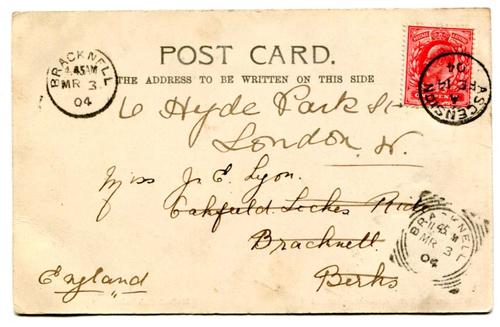 BRACKNELL
MR 3
04
POST CARD.
THE ADDRESS TO BE WRITTEN ON THIS SIDE
ASCENSION
FE 14
04
6 Hyde Park St
London. W.
Miss J. E. Lyon.
Oakfield.
Bracknell.
Berks
England
BRACKNELL
11.45 M
MR 3
04